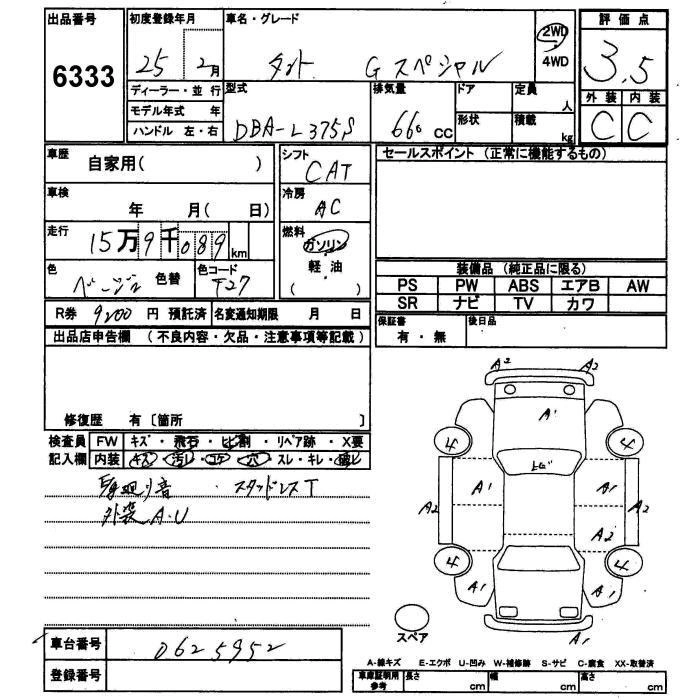 出品番号
6333
初度登録年月
25 2月
ディーラー・並 行
モデル年式 年
ハンドル 左・右
車名・グレード
タント Gスペシャル
2WD
4WD
型式
DBA-L375S
排気量
660 CC
ドア
形状
定員
人
積載
kg
評 価 点
3.5
外 装 内 装
C C
車歴
自家用( )
車検
年 月( 日)
走行
15万9千089km
色
ベージュ 色替
色コード
T27
シフト
CAT
冷房
AC
燃料
ガソリン
軽 油
( )
セールスポイント (正常に機能するもの)
装備品 (純正品に限る)
PS PW ABS エアB AW
SR ナビ TV カワ
保証書
有 ・ 無
後日品
R券 9200 円 預託済 名変通知期限 月 日
出品店申告欄 (不良内容・欠品・注意事項等記載)
修復歴 有 〔箇所 〕
検査員 FW キズ ・ 飛石 ・ ヒビ割 ・ リペア跡 ・ X要
記入欄 内装 キズ ・ 汚レ ・ コゲ ・ 穴 ・ スレ ・ キレ ・
廻り音 ・ スタッドレスT
外装A.U
車台番号 0625952
登録番号
A2 A2
A1
4 4
ヒビ
A1 A1
A2 A2 A2
4 4
A1 A1
スペア
A1
A-線キズ E-エクボ U-凹み W-補修跡 S-サビ C-腐食 XX-取替済
車庫証明用
参考
長さ cm 幅 cm 高さ cm